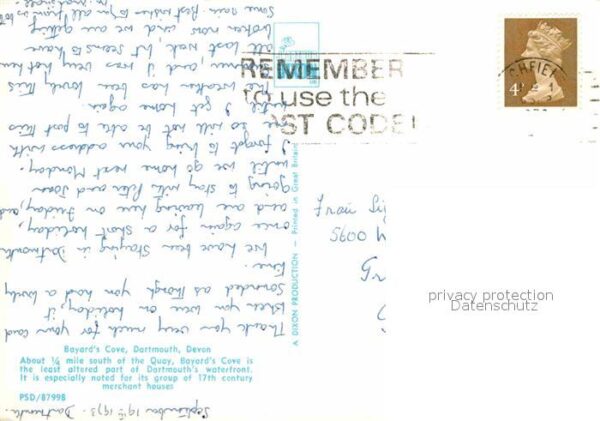 September 19th 1973. Dartmouth.
Thank you very much for your card
when you were on holiday, it
sounded as though you had a lovely
time.
We have been staying in Dartmouth
once again for a short holiday,
and are leaving here on Friday, and
going to stay with Peter and Joan
until we go home next Monday.
I forgot to bring your address with
me so will not be able to post this
until I get home again.
The weather has been lovely this
summer, and it was very hot here
all last week, but seems to have
broken now and we are getting
some rain. Best wishes to you all
from us both
REMEMBER
to use the
POST CODE!
4
Frau
5600
privacy protection
Datenschutz
A DIXON PRODUCTION – Printed in Great Britain
Bayard's Cove, Dartmouth, Devon
About ¼ mile south of the Quay, Bayard's Cove is
the least altered part of Dartmouth's waterfront.
It is especially noted for its group of 17th century
merchant houses
PSD/87998